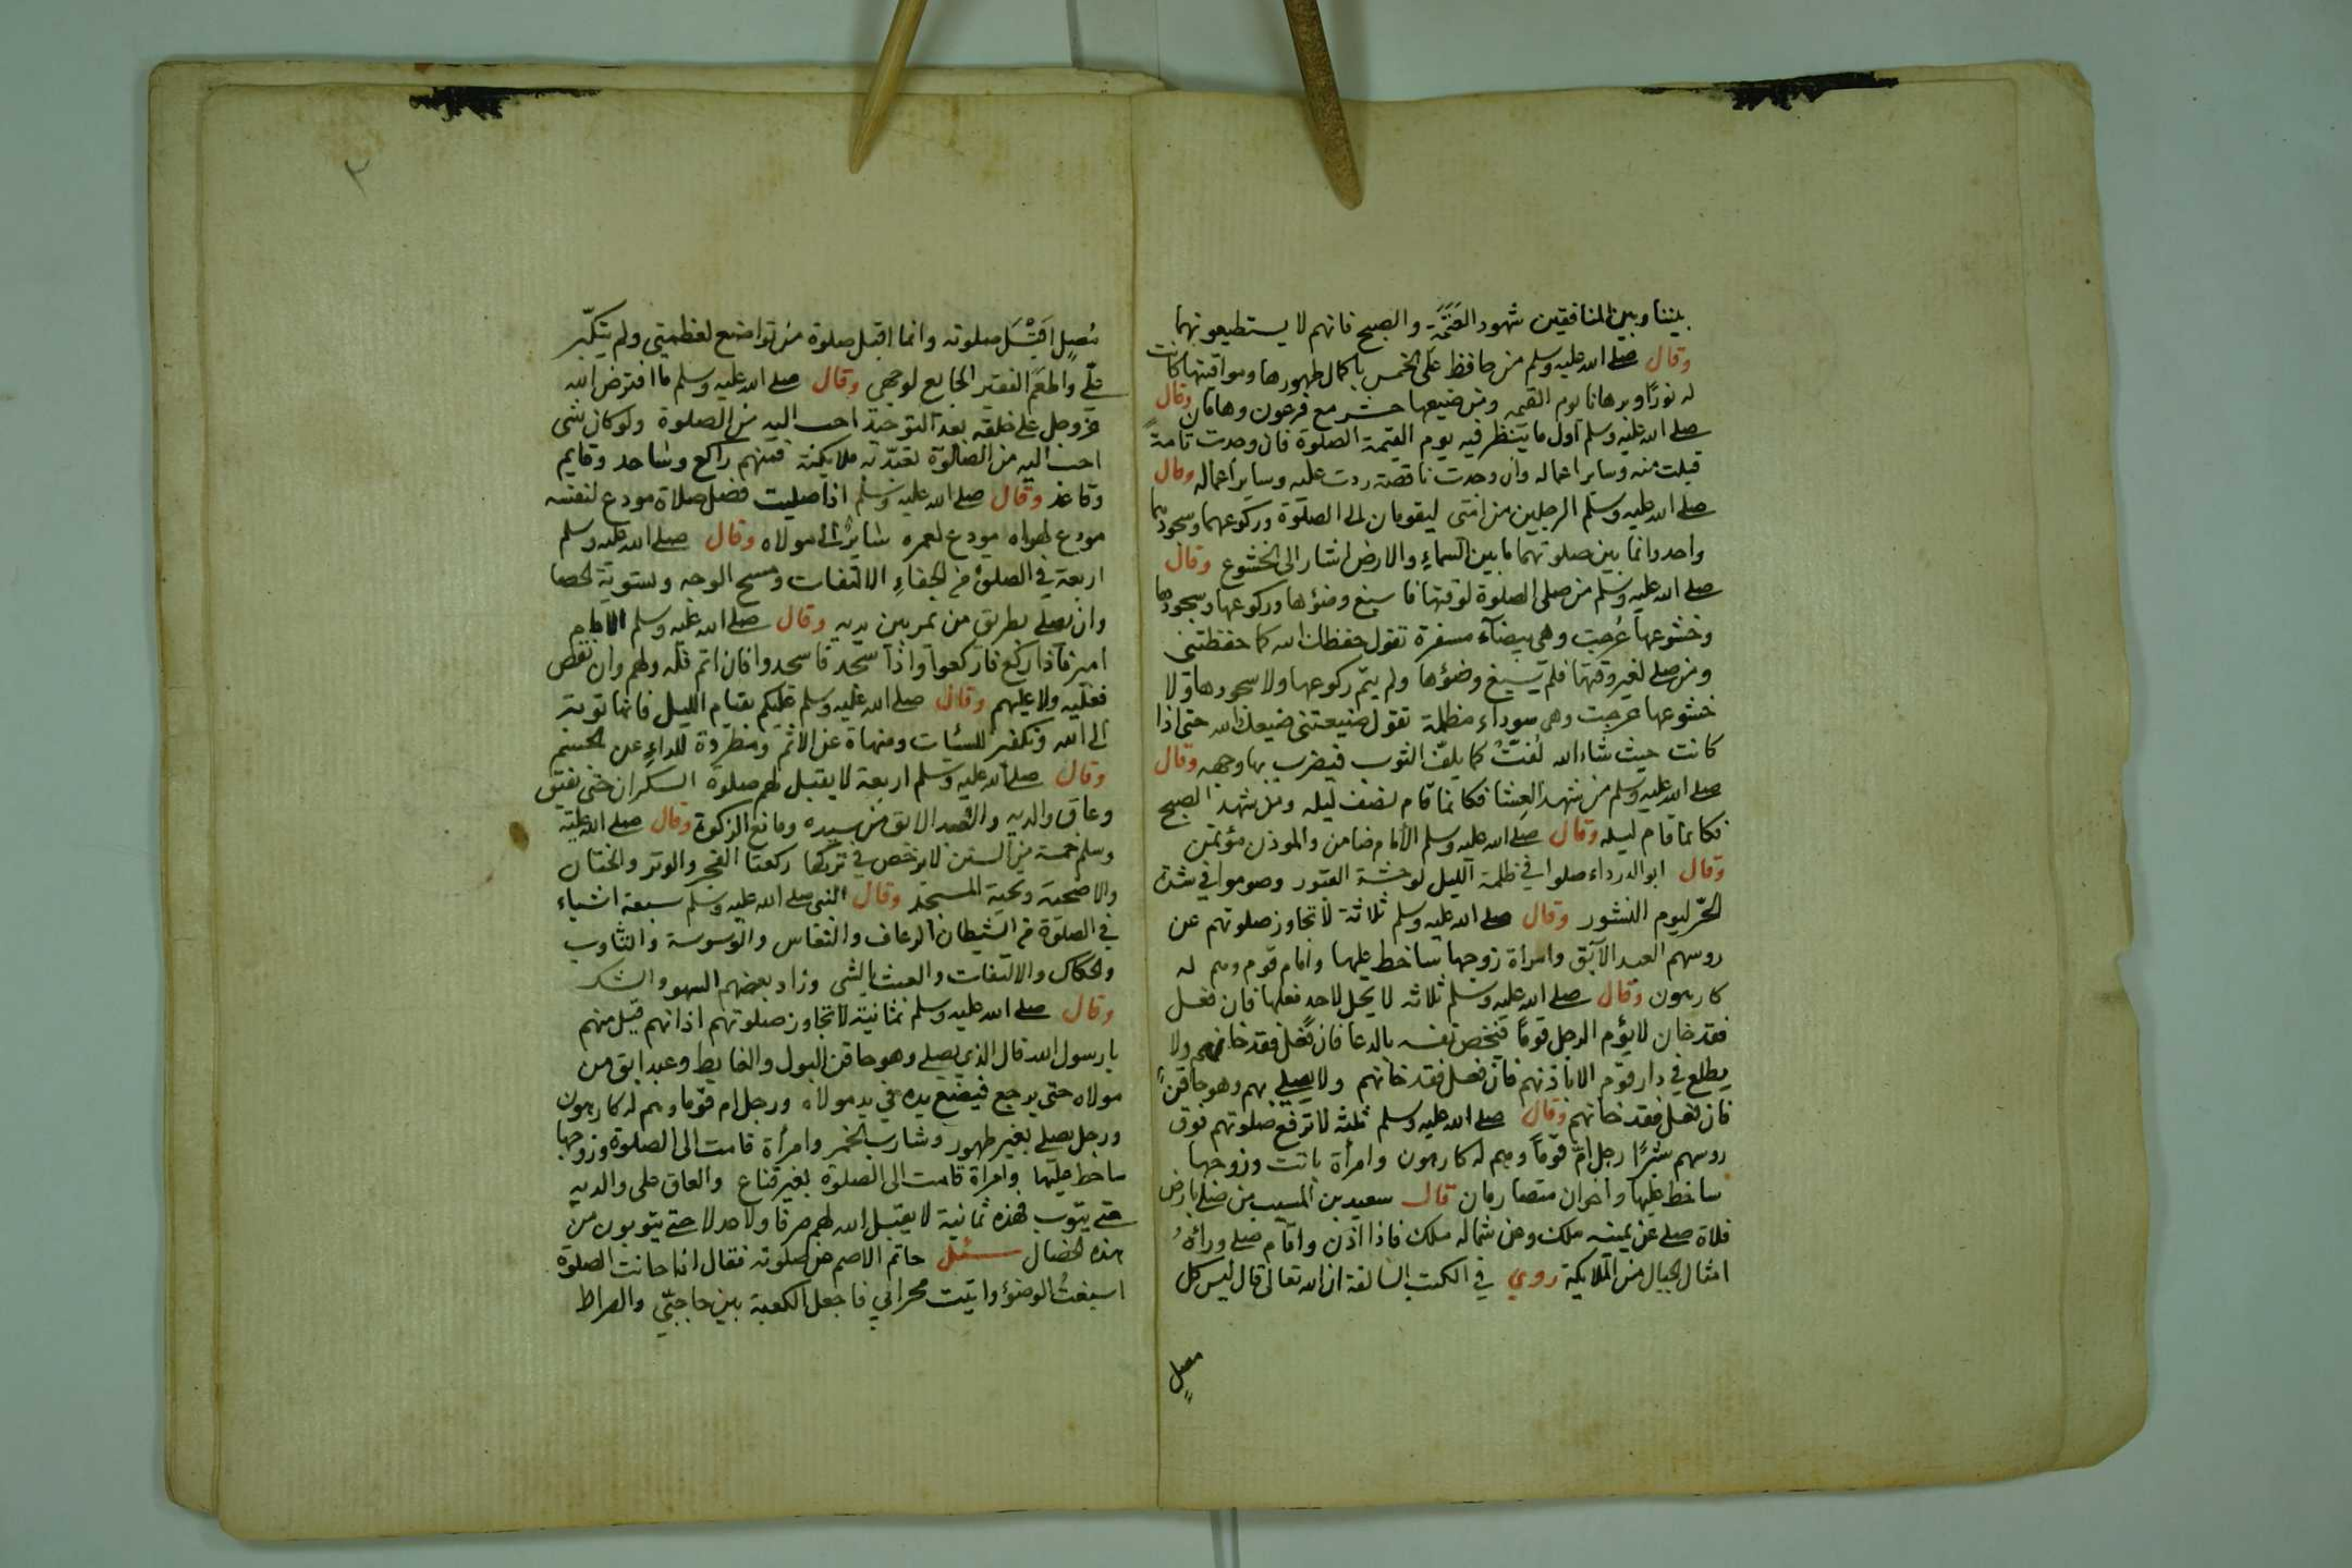 بيننا وبين المنافقين شهود العتمة والصبح فانهم لا يستطيعونهما
وقال صلى الله عليه وسلم من حافظ على الخمس باكمال طهورها ومواقيتها كانت
له نورًا وبرهانا يوم القيمه ومن ضيعها حشر مع فرعون وهامان وقال
صلى الله عليه وسلم اول ما ينظر فيه يوم القيمة الصلوة فان وجدت تامةً
قبلت منه وساير اعماله وان وجدت ناقصة ردت عليه وساير اعماله وقال
صلى الله عليه وسلم الرجلين من امتى ليقومان الى الصلوة وركوعهما وسجودهما
واحد وانما بين صلوتهما ما بين السماء والارض اشار الى الخشوع وقال
صلى الله عليه وسلم من صلى الصلوة لوقتها فاسبغ وضؤها وركوعها وسجودها
وخشوعها عُرجت وهى بيضآء مسفرة تقول حفظك الله كما حفظتنى
ومن صلى لغير وقتها فلم يسبغ وضؤها ولم يتم ركوعها ولا سجودها ولا
خشوعها عرجت وهى سوداء مظلمة تقول ضيعتنى ضيعك الله حتى اذا
كانت حيث شاء الله لُفتْ كما يلف الثوب فيضرب بها وجهه وقال
صلى الله عليه وسلم من شهد العشا فكانما قام نصف ليله ومن شهد الصبح
فكانما قام ليله وقال صلى الله عليه وسلم الامام ضامن والموذن مؤتمن
وقال ابو الدرداء صلوا فى ظلمة الليل لوحشة القبور وصوموا فى شدة
الحرّ ليوم النشور وقال صلى الله عليه وسلم ثلاثة لا تجاوز صلوتهم عن
روسهم العبد الآبق وامراة زوجها ساخط عليها وامام قوم وهم له
كارهون وقال صلى الله عليه وسلم ثلاثه لا يحل لاحدٍ فعلها فان فعل
فقد خان لا يؤم الرجل قومًا فيخص نفسه بالدعا فان فعل فقد خانهم ولا
يطلع فى دار قوم الا باذنهم فان فعل فقد خانهم ولا يصلى بهم وهو حاقنٌ
فان فعل فقد خانهم وقال صلى الله عليه وسلم ثلثه لا ترفع صلوتهم فوق
روسهم شبرًا رجل امّ قومًا وهم له كارهون وامرأة باتت وزوجها
ساخط عليها واخوان متصارمان قال سعيد بن المسيب من صلى بارض
فلاة صلى عن يمينه ملك وعن شماله ملك فاذا اذن واقام صلى ورائهُ
امثال الجبال من الملايكة روى فى الكتب السالفة ان الله تعالى قال ليس كل
مصلٍ
٢
مُصلٍ اَقْبَلَ صلوته وانما اقبل صلوة من تواضع لعظمتى ولم يتكبّر
علّى واطعَم الفقير الجايع لوجهى وقال صلى الله عليه وسلم ما افترض الله
عز وجل على خلقه بعد التوحيد احب اليه من الصلوة ولو كان شى
احب اليه من الصلوة لعبد به ملايكته فمنهم راكع وساجد وقايم
وقاعد وقال صلى الله عليه وسلم اذا صليت فصل صلاة مودع لنفسه
مودع لهواه مودع لعمره سايرٌ الى مولاه وقال صلى الله عليه وسلم
اربعة فى الصلوة من الجفاءِ الالتفات ومسح الوجه وتسوية الحصا
وان يصلى بطريق من يمر بين يديه وقال صلى الله عليه وسلم الامام
امير فاذا ركع فاركعوا واذا سجد فاسجدوا فان اتم فله ولهم وان نقص
فعليه ولا عليهم وقال صلى الله عليه وسلم عليكم بقيام الليل فانها توبة
الى الله وتكفير للسئات ومنهاة عن الاثم ومطردة للداءِ عن الجسم
وقال صلى الله عليه وسلم اربعة لا يقبل لهم صلوة السكران حتى يفيق
وعاق والديه والعبد الابق من سيده ومانع الزكوة وقال صلى الله عليه
وسلم خمسة من السنن لا يرخص فى تركها ركعتا الفجر والوتر والختان
والاضحية وتحية المسجد وقال النبى صلى الله عليه وسلم سبعة اشياء
فى الصلوة من الشيطان الرعاف والنعاس والوسوسة والتثاوب
والحكاك والالتفات والعبث بالشى وزاد بعضهم السهو والشك
وقال صلى الله عليه وسلم ثمانية لا تجاوز صلوتهم اذانهم قيل منهم
يا رسول الله قال الذى يصلى وهو حاقن البول والغايط وعبد ابق من
مولاه حتى يرجع فيضع يده فى يد مولاه ورجل ام قوما وهم له كارهون
ورجل يصلى بغير طهور وشارب الخمر وامرأة قامت الى الصلوة وزوجها
ساخط عليها وامراة قامت الى الصلوة بغير قناع والعاق على والديه
حتى يتوب فهذه ثمانية لا يقبل الله لهم صرفا ولا عدلا حتى يتوبون من
هذه الخصال سئل حاتم الاصم عن صلوته فقال اذا حانت الصلوة
اسبغتُ الوضؤ واتيت محرابى فاجعل الكعبة بين حاجبّى والصراط